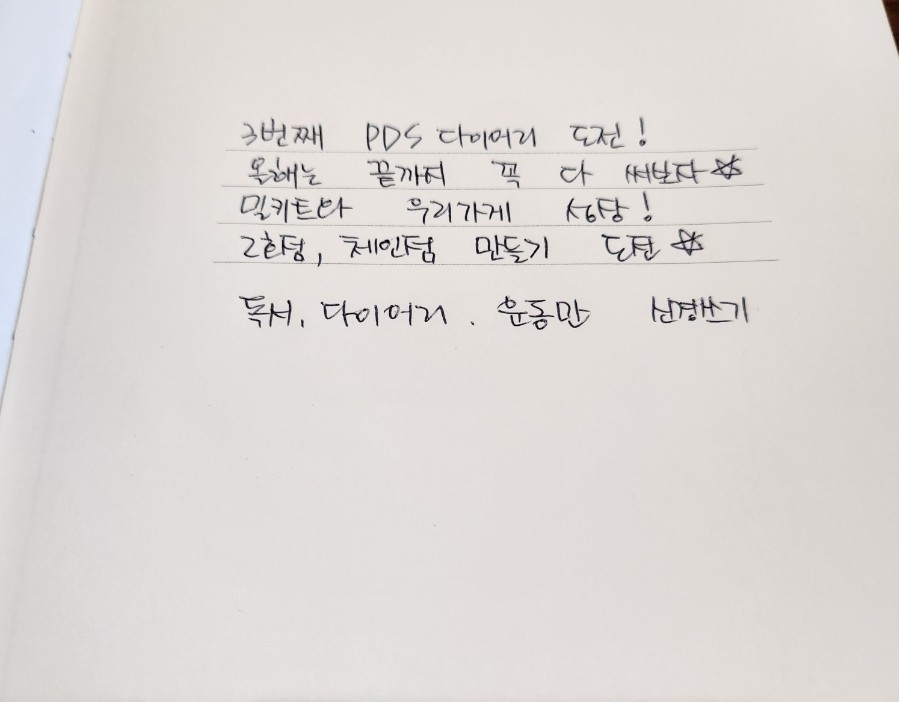 3번째 PDS 다이어리 도전!
올해는 끝까지 꼭 다 써보자☆
밀키트와 우리가게 성장!
2호점, 체인점 만들기 도전☆
독서, 다이어리. 운동만 신경쓰기